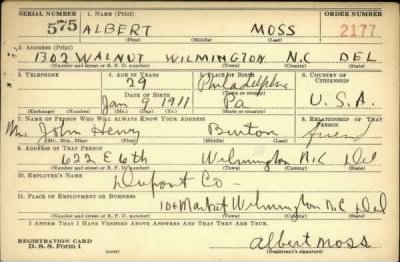 SERIAL NUMBER 1. NAME (Print) ORDER NUMBER
575 ALBERT MOSS 2177
(First) (Middle) (Last)
2. ADDRESS (Print)
1302 WALNUT WILMINGTON N.C DEL
(Number and street or R. F. D. number) (Town) (County) (State)
3. TELEPHONE 4. AGE IN YEARS 5. PLACE OF BIRTH 6. COUNTRY OF CITIZENSHIP
29 Philadelphia
DATE OF BIRTH (Town or county)
Jan 9 1911 Pa U.S.A.
(Exchange) (Number) (Mo.) (Day) (Yr.) (State or country)
7. NAME OF PERSON WHO WILL ALWAYS KNOW YOUR ADDRESS 8. RELATIONSHIP OF THAT PERSON
John Henry Burton friend
(Mr., Mrs., Miss) (First) (Middle) (Last)
9. ADDRESS OF THAT PERSON
622 E 6th Wilmington N.C Del
(Number and street or R. F. D. number) (Town) (County) (State)
10. EMPLOYER'S NAME
Dupont Co -
11. PLACE OF EMPLOYMENT OR BUSINESS
10 + Market Wilmington N.C Del
(Number and street or R. F. D. number) (Town) (County) (State)
I AFFIRM THAT I HAVE VERIFIED ABOVE ANSWERS AND THAT THEY ARE TRUE.
REGISTRATION CARD
D. S. S. Form 1
Albert Moss
(Registrant's signature)